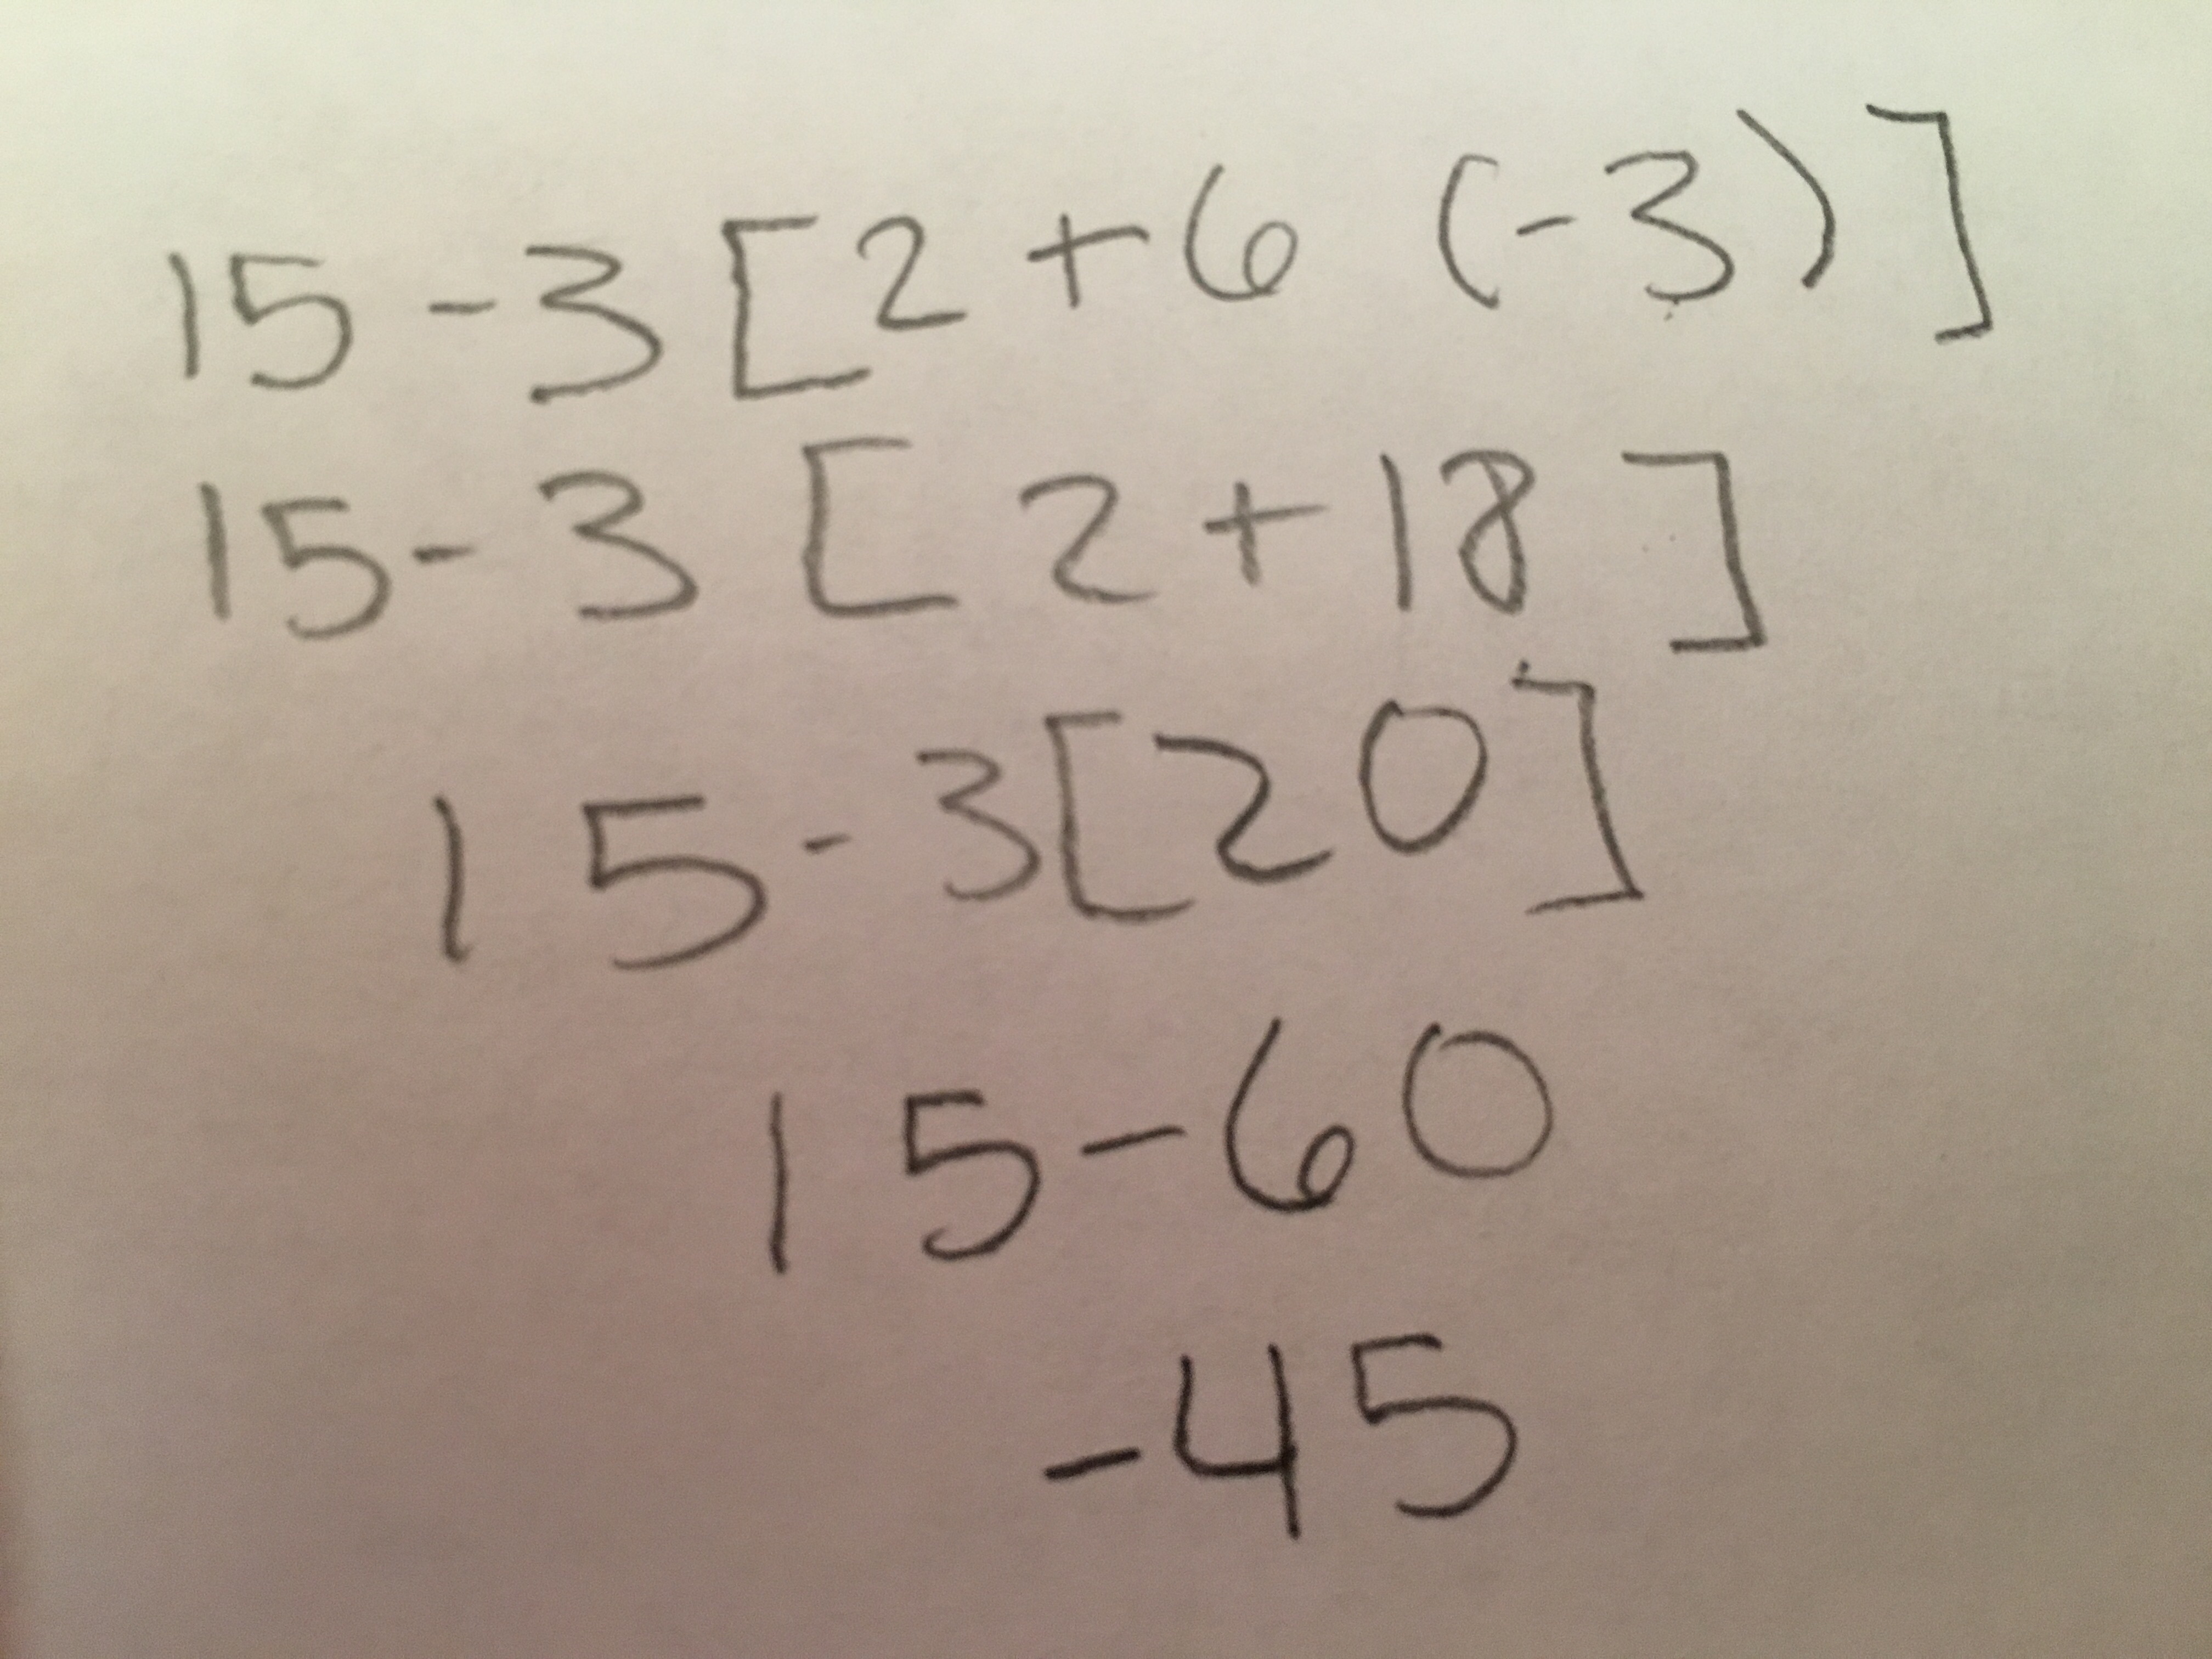 15 - 3 [2 + 6 (-3)]
15 - 3 [2 + 18]
15 - 3[20]
15 - 60
-45